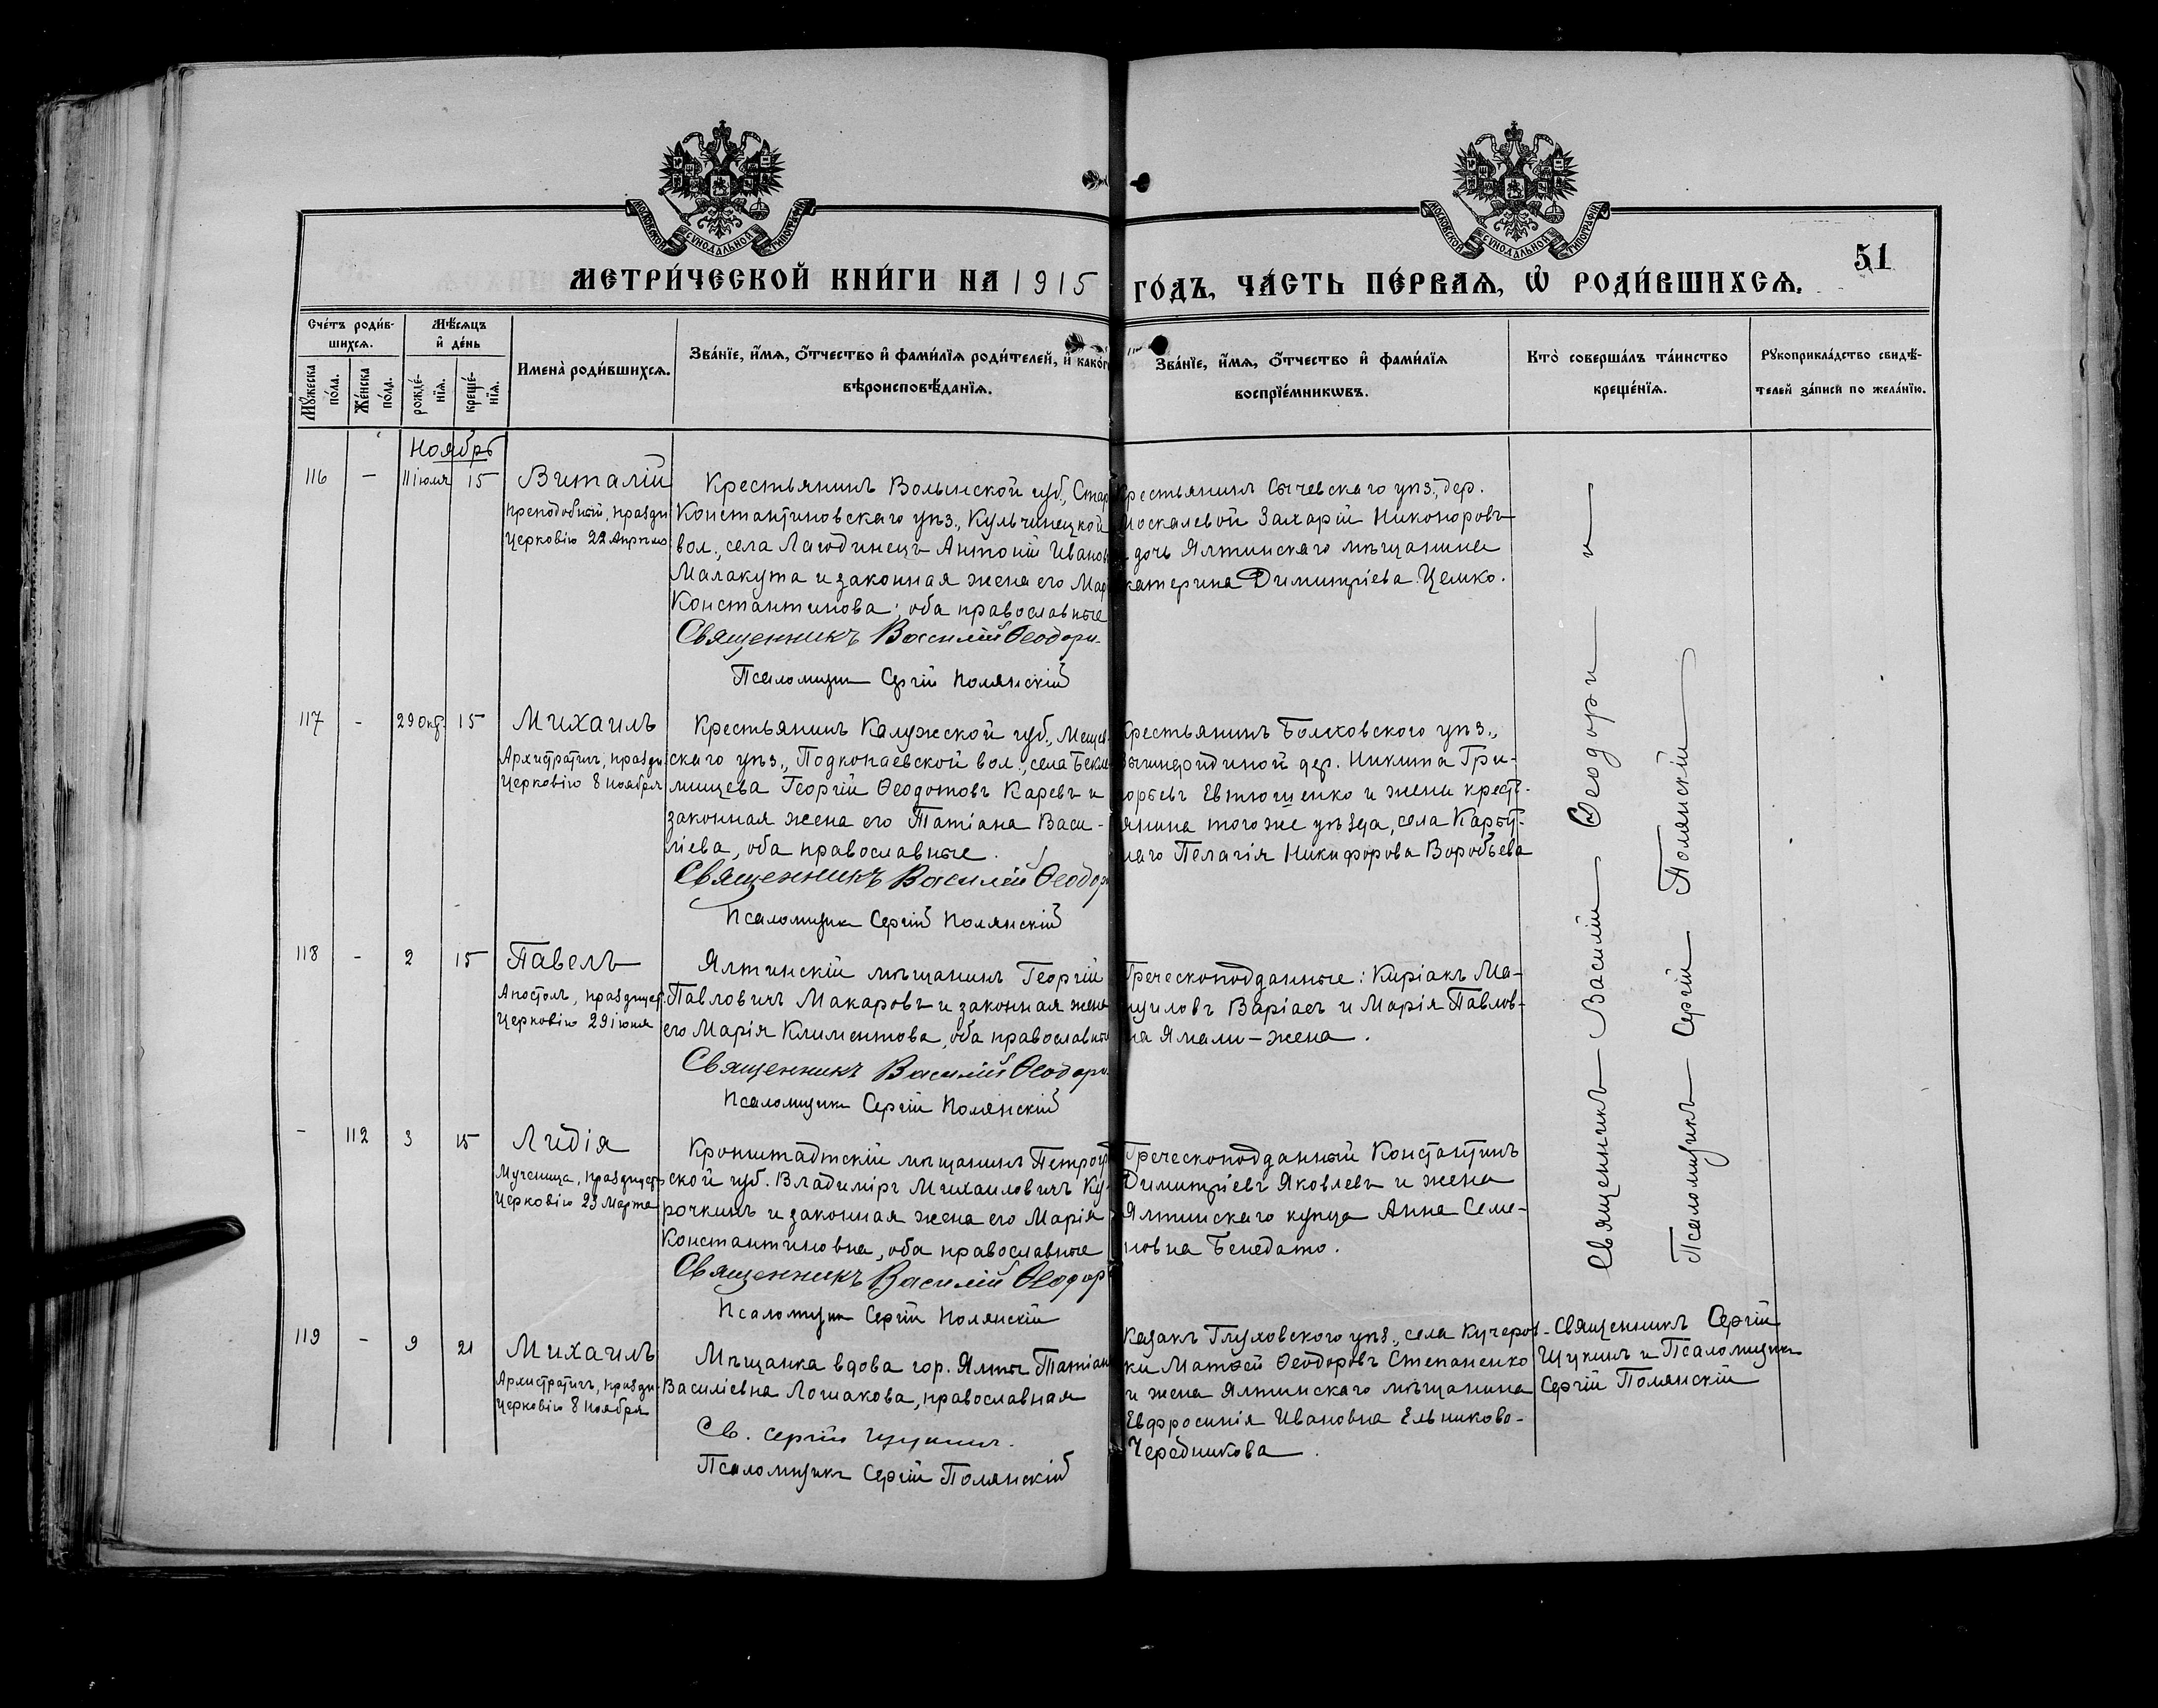 МОСКОВСКОЙ СѴНОДАЛЬНОЙ ТИПОГРАФІИ
МОСКОВСКОЙ СѴНОДАЛЬНОЙ ТИПОГРАФІИ
51
МЕТРИ́ЧЕСКОЙ КНИ́ГИ НА 1915 ГО́ДЪ, ЧА́СТЬ ПЕ́РВАѦ, Ѡ҆ РОДИ́ВШИХСѦ.
Счéтъ роди́в-
шихсѧ.
Мѣ́сѧцъ
и҆ дéнь
Мꙋ́жеска пóла.
Жéнска пóла.
рождé-
нїѧ.
крещé-
нїѧ.
Именà роди́вшихсѧ.
Звáнїе, и҆́мѧ, ѻ҆́тчество и҆ фами́лїѧ роди́телей, и҆ какóгѡ
вѣроисповѣ́данїѧ.
Звáнїе, и҆́мѧ, ѻ҆́тчество и҆ фами́лїѧ
воспрїéмникѡвъ.
Ктò совершáлъ тáинство
крещéнїѧ.
Рꙋкоприклáдство свидѣ́-
телей зáписи по желáнїю.
Ноябрь
116 — 11 іюля 15 Виталій
Преподобный, праздн.
Церковію 22 Апрѣля
Крестьянинъ Волынской губ., Стар
Константиновскаго уѣз., Кульчинецкой
вол., села Лагодинецъ Антоній Иванов
Малакута и законная жена его Мар
Константинова; оба православные
Священникъ Василій Ѳеодори
Псаломщикъ Сергій Полянскій
Крестьянинъ Сычевскаго уѣз., дер.
Москалевой Захарій Никоноровъ
и дочь Ялтинскаго мѣщанина
Екатерина Димитріева Цемко.
117 - 29 Окт. 15 Михаилъ
Архистратигъ, праздн.
Церковію 8 ноября
Крестьянинъ Калужской губ., Мещов-
скаго уѣз., Подкопаевской вол., села Бекле-
мищева Георгій Ѳеодотовъ Каревъ и
законная жена его Татіана Васи-
ліева, оба православные.
Священникъ Василій Ѳеодори
Псаломщикъ Сергій Полянскій
Крестьянинъ Болховского уѣз.,
дер. Никита Гри-
горьевъ Евтюшенко и жена кресть-
янина того же уѣзда, села
Пелагія Никифорова Воробьева
118 - 2 15 Павелъ
Апостолъ, празднует.
Церковію 29 іюня
Ялтинскій мѣщанинъ Георгій
Павловичъ Макаровъ и законная жена
его Марія Климентова, оба православные
Священникъ Василій Ѳеодори
Псаломщикъ Сергій Полянскій
Греческоподданные: Киріакъ Ма-
нуиловъ Варіасъ и Марія Павлов-
на Ямали - жена.
- 112 3 15 Лидія
Мученица, празднует.
Церковію 23 Марта
Кронштадтскій мѣщанинъ Петрогр
ской губ. Владиміръ Михаиловичъ Ку-
рочкинъ и законная жена его Марія
Константиновна, оба православные
Священникъ Василій Ѳеодори
Псаломщикъ Сергій Полянскій
Греческоподданный Константинъ
Димитріевъ Яковлевъ и жена
Ялтинскаго купца Анна Семе-
новна Бенедато.
Священникъ Василій Ѳеодори и
Псаломщикъ Сергій Полянскій
119 - 9 21 Михаилъ
Архистратигъ, праздн.
Церковію 8 Ноября
Мѣщанка вдова гор. Ялты Татіан
Василіевна Лошакова, православная
Св. Сергій Щукинъ.
Псаломщикъ Сергій Полянскій
Казакъ Глуховского уѣз., села Кучеров-
ки Матѳей Ѳеодоровъ Степаненко
и жена Ялтинскаго мѣщанина
Евфросинія Ивановна Ельникова-
Чередникова.
Священникъ Сергій
Щукинъ и Псаломщикъ
Сергій Полянскій